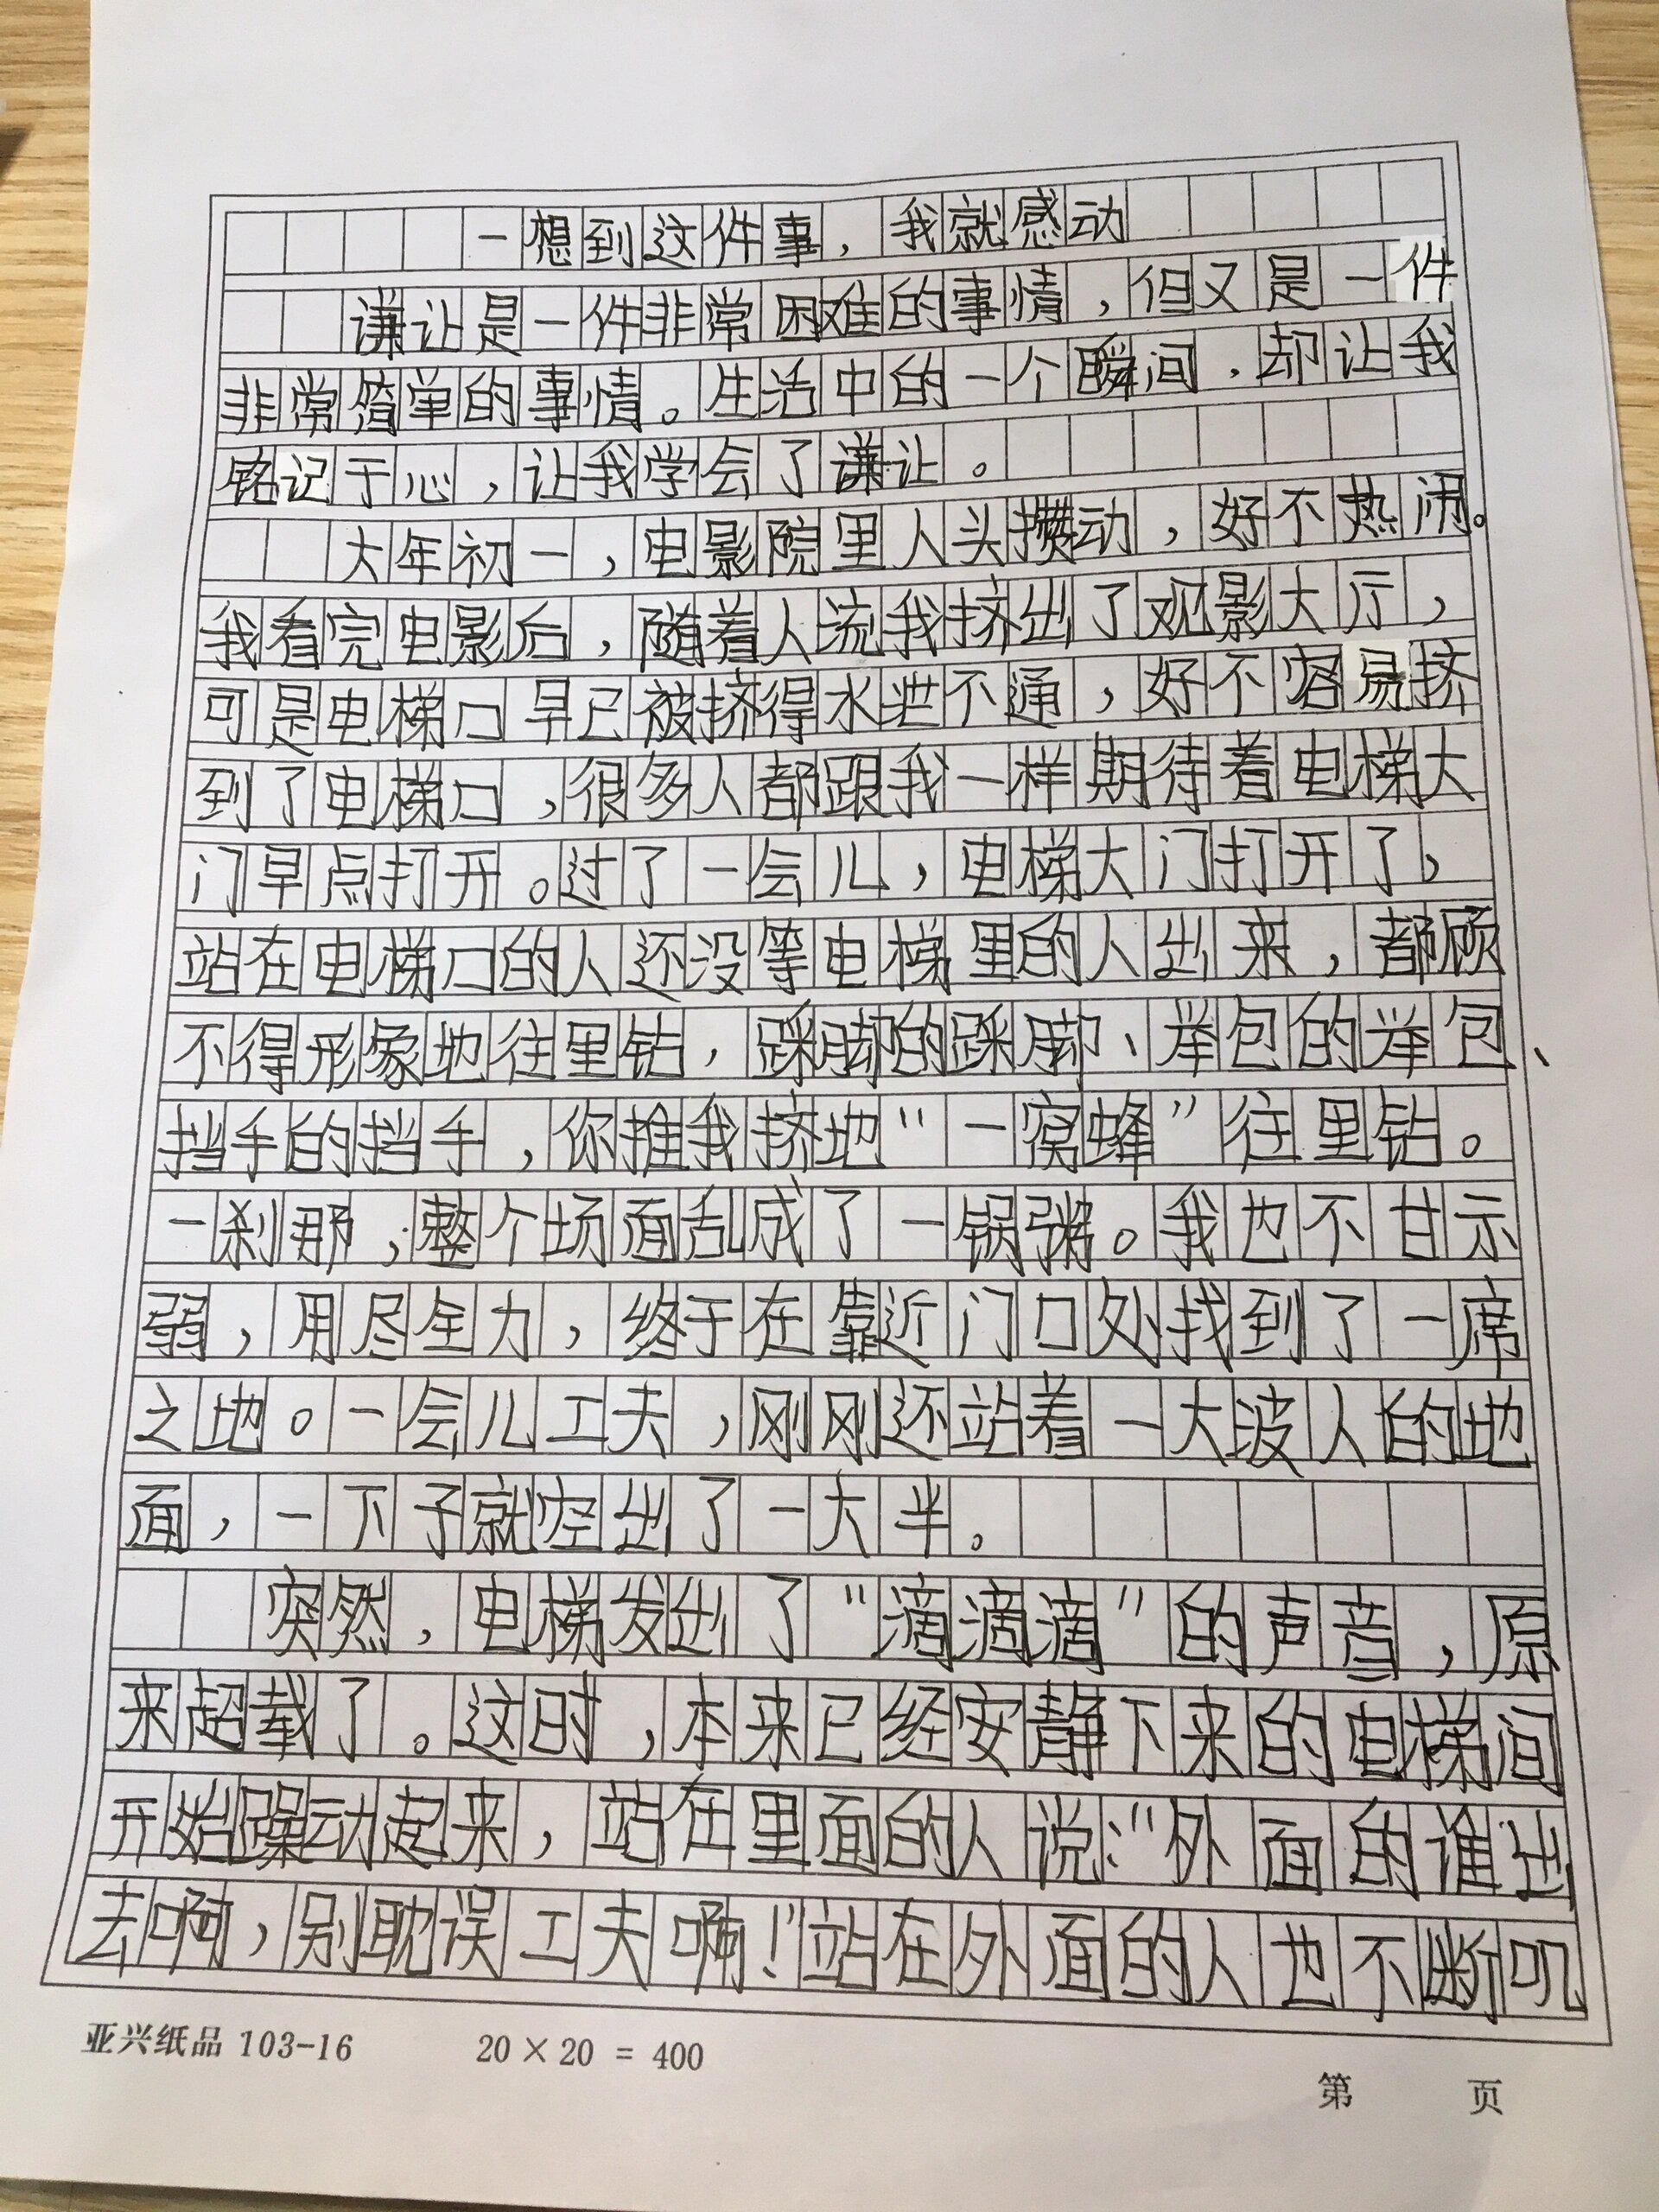 一想到这件事，我就感动
谦让是一件非常困难的事情，但又是一件
非常简单的事情。生活中的一个瞬间，却让我
铭记于心，让我学会了谦让。
大年初一，电影院里人头攒动，好不热闹。
我看完电影后，随着人流我挤出了观影大厅，
可是电梯口早已被挤得水泄不通，好不容易挤
到了电梯口，很多人都跟我一样期待着电梯大
门早点打开。过了一会儿，电梯大门打开了，
站在电梯口的人还没等电梯里的人出来，都顾
不得形象地往里钻，踩脚的踩脚、举包的举包、
挡手的挡手，你推我挤地“一窝蜂”往里钻。
一刹那，整个场面乱成了一锅粥。我也不甘示
弱，用尽全力，终于在靠近门口处找到了一席
之地。一会儿工夫，刚刚还站着一大波人的地
面，一下子就空出了一大半。
突然，电梯发出了“滴滴滴”的声音，原
来超载了。这时，本来已经安静下来的电梯间
开始躁动起来，站在里面的人说：“外面的谁出
去啊，别耽误工夫啊！”站在外面的人也不断叽
亚兴纸品 103-16 20×20 = 400
第 页